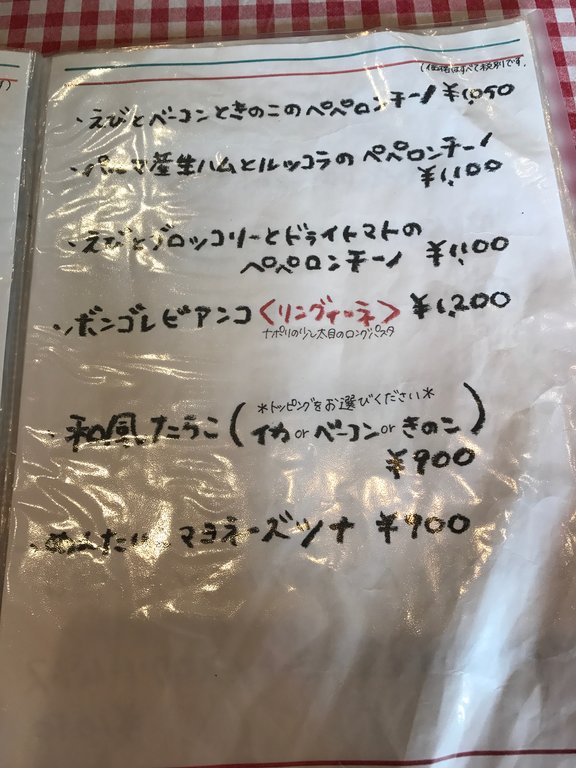 (価格はすべて税別です。
・えびとベーコンときのこのペペロンチーノ ¥1,050
・パルマ産生ハムとルッコラの ペペロンチーノ
¥1,100
・えびとブロッコリーとドライトマトの
ペペロンチーノ ¥1,100
・ボンゴレビアンコ〈リングイーネ〉 ¥1,200
ナポリの少し太目のロングパスタ
・和風たらこ(
＊トッピングをお選びください＊
イカ or ベーコン or きのこ)
¥900
・めんたい マヨネーズツナ ¥900